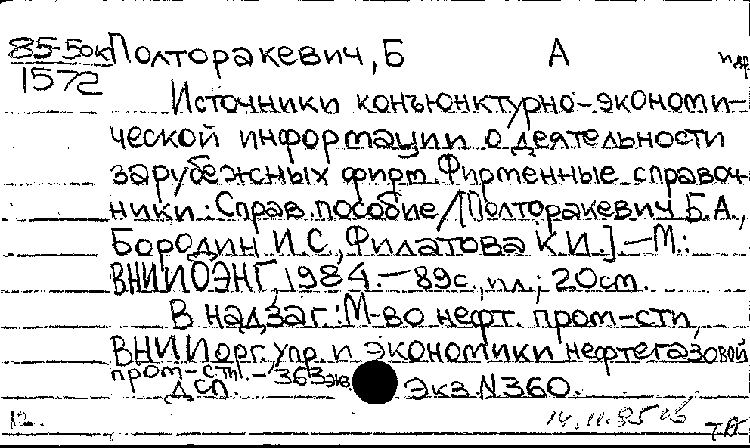 85-5ок Полторакевич, Б А
1572
Источники конъюнктурно-экономи-
ческой информации о деятельности
зарубежных фирм. Фирменные справоч-
ники: Справ. пособие / [Полторакевич Б.А.,
Бородин И.С., Филатова К.И.]. — М.:
ВНИИОЭНГ, 1984. — 89с., ил.; 20см.
В надзаг.: М-во нефт. пром-сти,
ВНИИорг. упр. и экономики нефтегазовой
пром-сти. — 363экз.
ДСП. Экз. N360.
12. 14.11.85